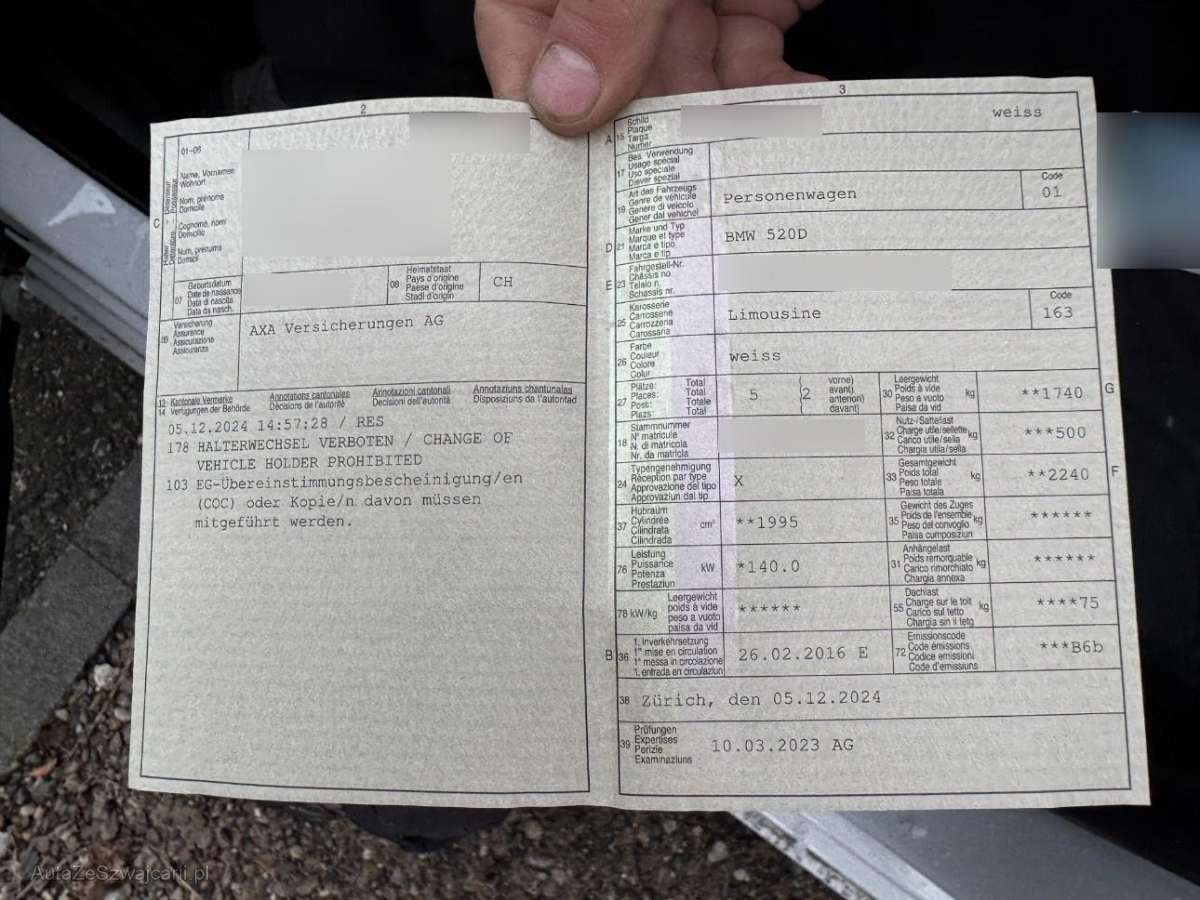 2
01-06
Name, Vornamen
Wohnort
Nom, prénoms
Domicile
C
Cognome, nomi
Domicilio
Num, prenums
Domicil
07
Geburtsdatum
Date de naissance
Data di nascita
Data da nasch.
08
Heimatstaat
Pays d'origine
Paese d'origine
Stadi d'origin
CH
09
Versicherung
Assurance
Assicurazione
Assicuranza
AXA Versicherungen AG
13 Kantonale Vermerke Annotations cantonales Annotazioni cantonali Annotaziuns chantunalas
14 Verfügungen der Behörde Décisions de l'autorité Decisioni dell'autorità Disposiziuns da l'autoritad
05.12.2024 14:57:28 / RES
178 HALTERWECHSEL VERBOTEN / CHANGE OF
VEHICLE HOLDER PROHIBITED
103 EG-Übereinstimmungsbescheinigung/en
(COC) oder Kopie/n davon müssen
mitgeführt werden.
3
A 15
Schild
Plaque
Targa
Numer
weiss
17
Bes. Verwendung
Usage spécial
Uso speciale
Diever spezial
19
Art des Fahrzeugs
Genre de véhicule
Genere di veicolo
Gener dal vehichel
Personenwagen
Code
01
D 21
Marke und Typ
Marque et type
Marca e tipo
Marca e tip
BMW 520D
E 23
Fahrgestell-Nr.
Châssis no
Telaio n.
Schassis nr.
25
Karosserie
Carrosserie
Carrozzeria
Carossaria
Limousine
Code
163
26
Farbe
Couleur
Colore
Colur
weiss
27
Plätze: Total
Places: Total
Posti: Totale
Plazs: Total
5
(2
vorne)
avant)
anteriori)
davant)
30
Leergewicht
Poids à vide
Peso a vuoto
Paisa da vid
kg
**1740
G
18
Stammnummer
N° matricule
N. di matricola
Nr. da matricla
32
Nutz-/Sattellast
Charge utile/sellette
Carico utile/sella
Chargia utila/sella
kg
***500
24
Typengenehmigung
Réception par type
Approvazione del tipo
Approvaziun dal tip
X
33
Gesamtgewicht
Poids total
Peso totale
Paisa totala
kg
**2240
F
37
Hubraum
Cylindrée
Cilindrata
Cilindrada
cm³
**1995
35
Gewicht des Zuges
Poids de l'ensemble
Peso del convoglio
Paisa cumposiziun
kg
******
76
Leistung
Puissance
Potenza
Prestaziun
kW
*140.0
31
Anhängelast
Poids remorquable
Carico rimorchiato
Chargia annexa
kg
******
78 kW/kg
Leergewicht
poids à vide
peso a vuoto
paisa da vid
******
55
Dachlast
Charge sur le toit
Carico sul tetto
Chargia sin il tetg
kg
****75
B 36
1. Inverkehrsetzung
1re mise en circulation
1a messa in circolazione
1. entrada en circulaziun
26.02.2016 E
72
Emissionscode
Code émissions
Codice emissioni
Code d'emissiuns
***B6b
38 Zürich, den 05.12.2024
39
Prüfungen
Expertises
Perizie
Examinaziuns
10.03.2023 AG
AutaZeSzwajcarii.pl